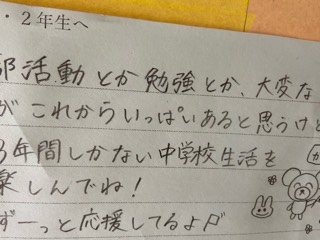 ・２年生へ
部活動とか勉強とか、大変な
がこれからいっぱいあると思うけど
3年間しかない中学校生活を
楽しんでね!
ずーっと応援してるよ